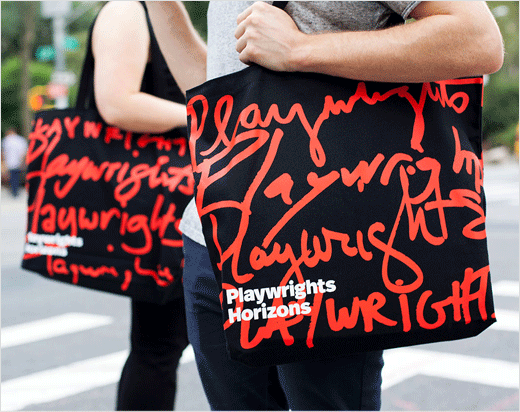 Playwrights
Playwrights
Playwrights
PLAYWRIGHT
Playwrights
Horizons
PLAYWRIGHTS
Playwrights
Playwrights
Playwrights
Horizons